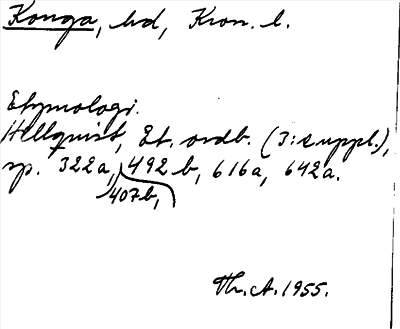 Konga, hd, Kron. l.
Etymologi.
Hellquist, Et. ordb. (3:e uppl.),
sp. 322a, 492b, 616a, 642a.
407b,
Th. A. 1955.